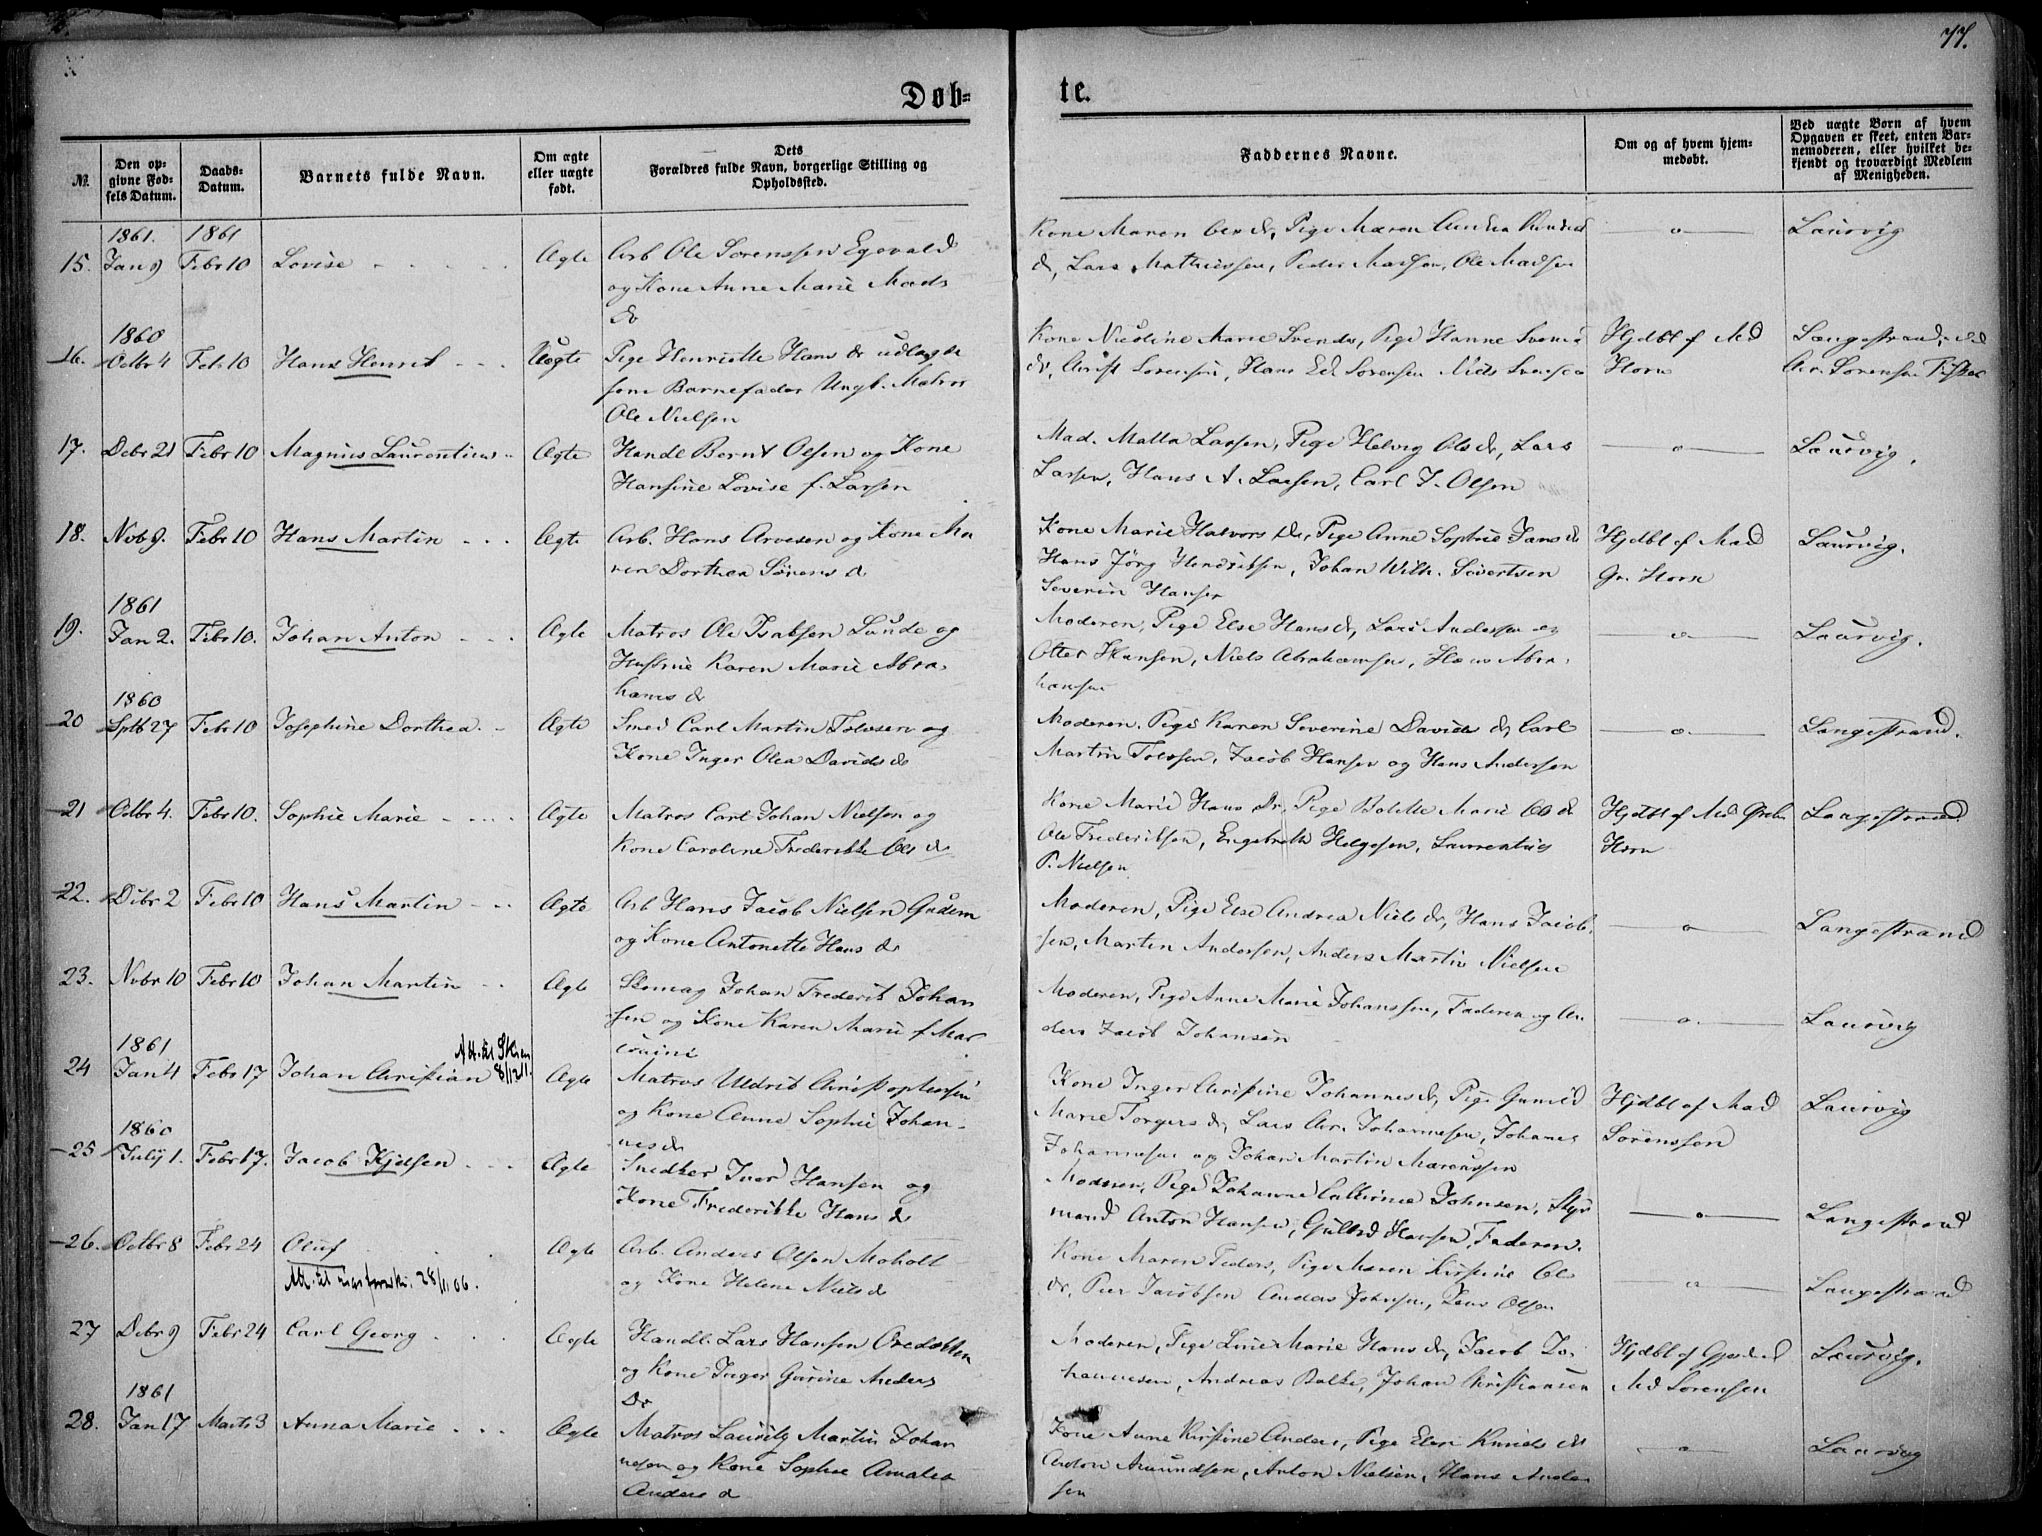 77.
Døb=
te.
№.
Den op-
givne Fød-
sels Datum.
Daabs-
Datum.
Barnets fulde Navn.
Om ægte
eller uægte
født.
Dets
Forældres fulde Navn, borgerlige Stilling og
Opholdssted.
Faddernes Navne.
Om og af hvem hjem-
medøbt.
Ved uægte Børn af hvem
Opgaven er skeet, enten Bar-
nemoderen, eller hvilket be-
kjendt og troværdigt Medlem
af Menigheden.
1861. 1861
15. Jan 9 Febr 10 Lovise Ægte Arb Ole Sørenssen Egevald
og Kone Anne Marie Mads
dr
Kone Maren Ols dr, Pige Maren Andrea
dr, Lars Mathiessen, Peder Madsen, Ole Madsen
Laurvig
1860
16. Octbr 4 Feb 10 Hans Henrik Uægte Pige Henriette Hans dr udlagde
som Barnefader Ungk. Matros
Ole Nielsen
Kone Nicoline Marie Svends, Pige Hanne Svens
dr, Christ Sørensen, Hans Ed. Sørensen Niels Svensen
Hjdbt af Md
Horn
Langestrand,
Chr. Sørensen Fisker
17. Debr 21 Febr 10 Magnus Laurentius Ægte Handl Bernt Olsen og Kone
Hansine Lovise f. Larsen
Mad. Malla Larsen, Pige Helvig Ols dr, Lars
Larsen, Hans A. Larsen, Carl J. Olsen
Laurvig.
18. Nvb 9. Febr 10 Hans Martin Ægte Arb. Hans Arvesen og Kone Ma
ren Dorthea Sørens d
Kone Marie Halvors dr, Pige Anne Sophie Jans dr
Hans Jörg Hendriksen, Johan Wilh. Sivertsen
Severin Hansen
Hjdbt af Mad
Gr. Horn
Laurvig.
1861
19. Jan 2. Febr 10. Johan Anton Ægte Matros Ole Isaksen Lunde og
Hustrue Karen Marie Abra
hams dr
Moderen, Pige Else Hans dr, Lars Andersen og
Otter Hansen, Niels Abrahamsen, Hans Abra-
hamsen
Laurvig.
1860
20 Sptb 27 Febr 10 Josephine Dorthea Ægte Smed Carl Martin Tolvsen og
Kone Inger Olea Davids dr
Moderen. Pige Karen Severine Davids dr, Carl
Martin Tolvsen, Jacob Hansen og Hans Andersen
Langestrand.
21 Octbr 4. Febr 10. Sophie Marie Ægte Matros Carl Johan Nielsen og
Kone Caroline Frederikke Ols dr
Kone Marie Hans Dr, Pige Bolette Marie Ols dr
Ole Frederiksen, Engebreth Helgesen, Laurentius
P. Nielsen
Hjdbt af Md
Horn
Langestrand.
22. Debr 2 Febr 10 Hans Martin Ægte Arb Hans Jacob Nielsen Gudem
og Kone Antonette Hans dr
Moderen, Pige Else Andrea Niels dr, Hans Jacob-
sen, Martin Andersen, Anders Martin Nielsen
Langestrand
23. Nvbr 10 Febr 10 Johan Martin Ægte Skomag Johan Frederik Johan
sen og Kone Karen Marie f. Mar
Moderen, Pige Anne Marie Johanssen, Faderen og An
ders Jacob Johansen
Laurvig
1861
24 Jan 4 Febr 17 Johan Christian Att. til 8/12 11. Ægte Matros Uldrik Christophersen
og Kone Anne Sophie Johan-
nes dr
Kone Inger Christine Johannes dr, Pige Gunild
Marie Torgers dr, Lars Chr. Johannesen, Johanes
Johannesen og Johan Martin Marcussen
Hjdbt af Mad
Sörenssen
Laurvig
1860
25 July 1. Febr 17. Jacob Kjelsen Ægte Snedker Iver Hansen og
Kone Frederikke Hans dr
Moderen, Pige Johanne Cathrine Johnsen, Styr
mand Anton Hansen, Gullik Hansen, Faderen.
Langestrand
26. Octbr 8 Febr 24 Oluf Ægte Arb. Anders Olsen Moholt
og Kone Helene Niels dr
Att. til 28/11 06.
Kone Maren Peders, Pige Maren Kirstine Ols
dr, Peer Jacobsen Anders Johnsen, Lars Olsen
Langestrand
27 Debr 9 Febr 24 Carl Georg Ægte Handl. Lars Hansen
og Kone Inger Gurine Anders
Dr
Moderen, Pige Line Marie Hans dr, Jacob Jo-
hannesen, Andreas Balke, Johan Christiansen
Hjdbt af
Md Sorensen
Laurvig.
1861
28. Jan 17 Marts 3 Anna Marie Ægte Matros Lauritz Martin Johan
nesen og Kone Sophie Amalia
Anders d
Kone Anne Kirstine Anders, Pige Elen Knuds dtr
Anton Amundsen, Anton Nielsen, Hans Ander
sen
Laurvig